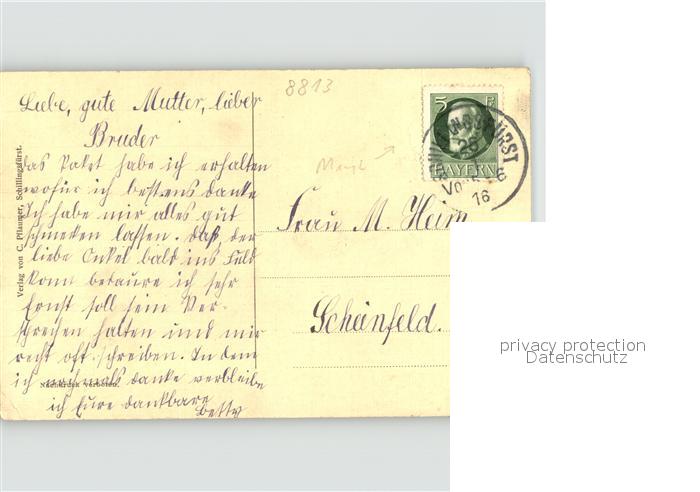 8813
Liebe, gute Mutter, lieber
Bruder
Das Paket habe ich erhalten
wofür ich bestens danke
Ich habe mir alles gut
schmecken lassen. Daß der
liebe Onkel bald ins Feld
kann bedaure ich sehr
Ernst soll sein Ver-
sprechen halten und mir
recht oft schreiben. In dem
ich danke verbleibe
ich Eure dankbare
Betty
Verlag von C. Pflaumer, Schillingsfürst.
Nachdruck verboten.
5 Pf
BAYERN
16
Frau M. Heim
Scheinfeld.
privacy protection
Datenschutz